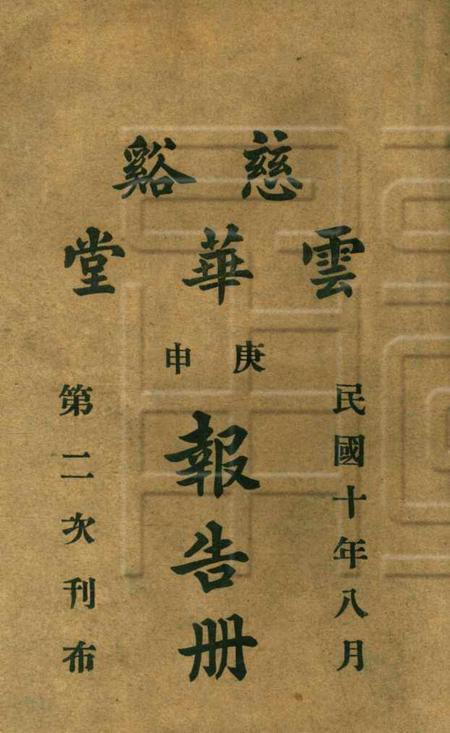 慈谿
雲華堂
庚申
報告册
民國十年八月
第二次刊布